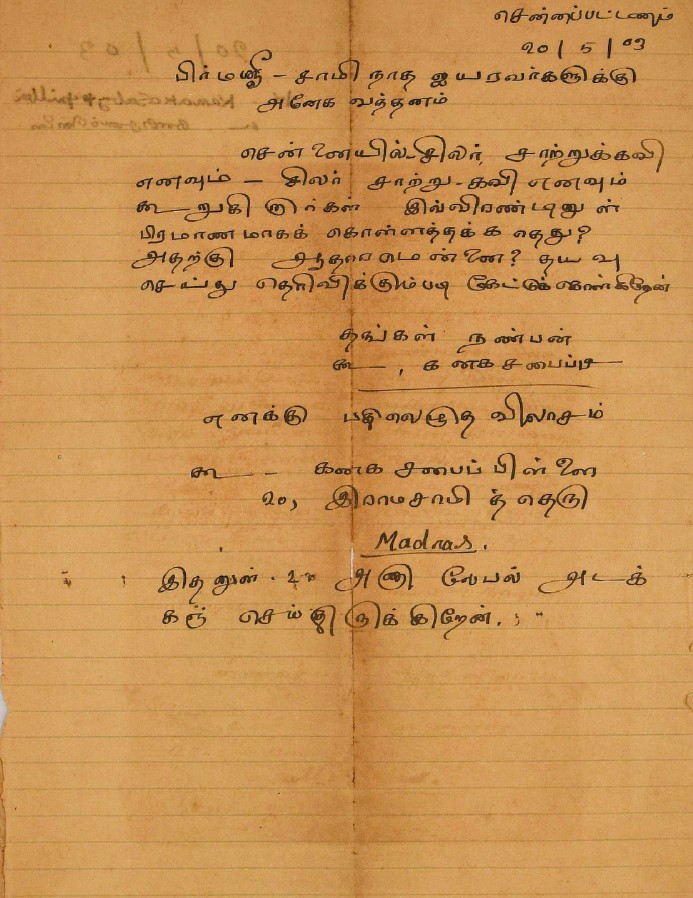 சென்னப்பட்டணம்
20/5/03
பிர்மஸ்ரீ - சாமி நாத ஐயரவர்களுக்கு
அனேக வந்தனம்
சென்னையில் சிலர், சாற்றுக்கவி
எனவும் - சிலர் சாற்று-கவி எனவும்
கூறுகிறார்கள் இவ்விரண்டினுள்
பிரமாணமாகக் கொள்ளத்தக்க தெது?
அதற்கு ஆதாரமென்னை? தயவு
செய்து தெரிவிக்கும்படி கேட்டுக்கொள்கிறேன்
தங்கள் நண்பன்
கூ, கனகசபைப்
எனக்கு விலாசம்
கூ - கனக சபைப் பிள்ளை
20, இராமசாமித் தெரு
Madras.
இதனுள் அணா லேபல் அடக்
கஞ் செய்திருக்கிறேன்.